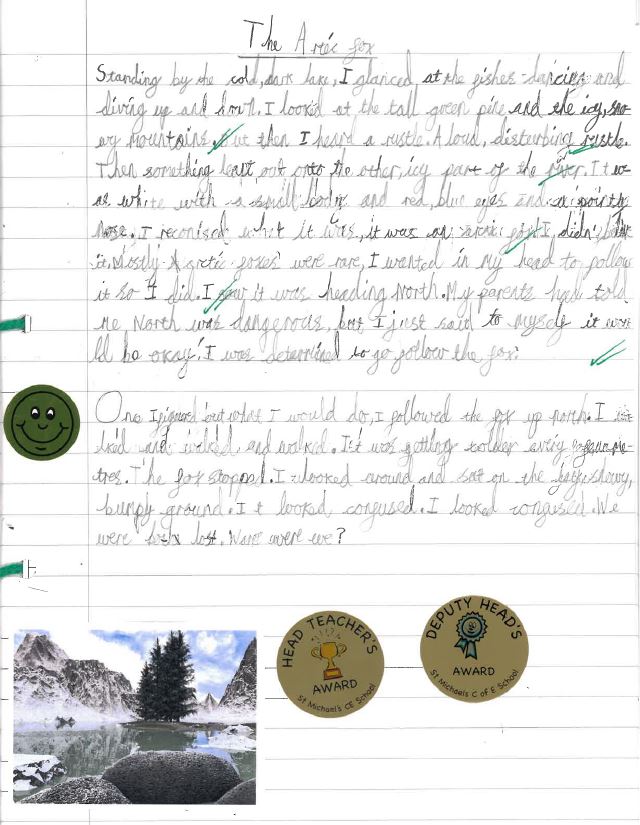 The Artic fox
Standing by the cold, dark lake, I glanced at the fishes dancing and
diving up and down. I looked at the tall green pine and the icy, sno
wy mountains, but then I heard a rustle. A loud, disturbing rustle.
Then something leapt out onto the other, icy part of the river. It w
as white with a small body and red, blue eyes and a pointy
nose. I reconised what it was, it was an arctic fox! I didn't
it. Mostly Arctic foxes were rare, I wanted in my head to follow
it so I did. I saw it was heading North. My parents had told
me North was dangerous, but I just said to myself it wou
ld be okay! I was determined to go follow the fox.
One I figured out what I would do, I followed the fox up north. I
and walked, and walked. It was getting colder every me
tres. The fox stopped. I looked around and sat on the snowy,
bumpy ground. It looked confused. I looked confused. We
were both lost. Ware were we?
HEAD TEACHER'S
AWARD
St Michael's CE School
DEPUTY HEAD'S
AWARD
St Michaels C of E School